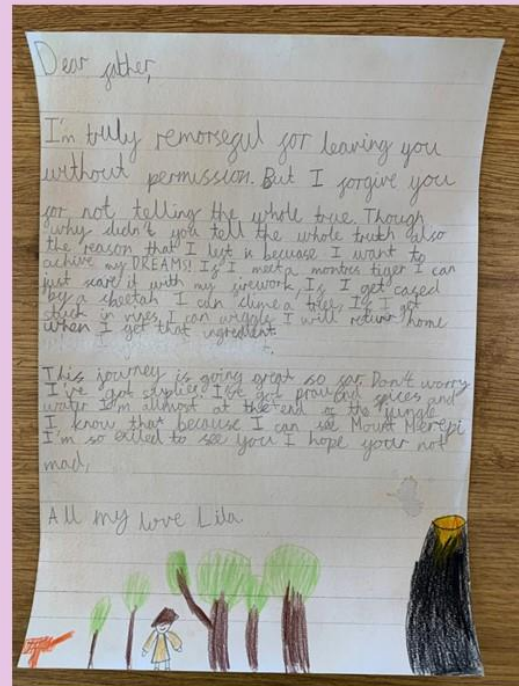 Dear father,
I'm truly remorseful for leaving you
without permission. But I forgive you
for not telling the whole true. Though
why didn't you tell the whole truth also
the reason that I left is becuase I want to
achive my DREAMS! If I meet a montres tiger I can
just scare it with my firework, If I get cased
by a sheetah I can clime a tree, If I get
stuck in vines I can wiggle I will return home
when I get that ingredient.
This journey is going great so far. Don't worry
I've got I've got spices and
water I'm allmost at the end of the jungle
I know that because I can see Mount Merepi
I'm so exited to see you I hope your not
mad,
All my love Lila.